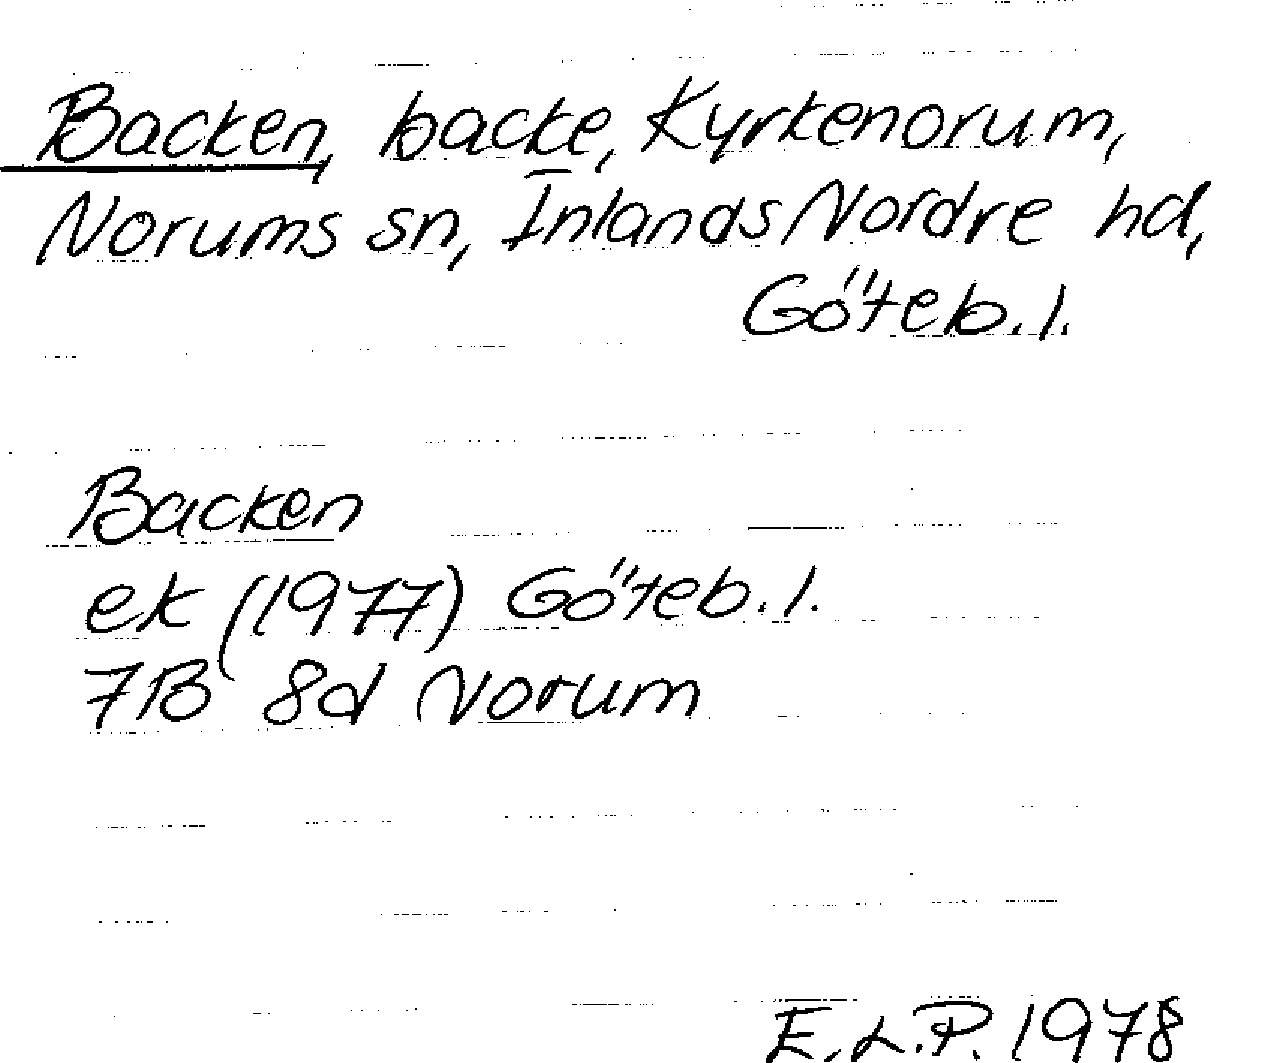 Backen, backe, Kyrkenorum,
Norums sn, Inlands Nordre hd,
Göteb. l.
Backen
ek (1977) Göteb. l.
7B 8d Norum
E.L.P. 1978